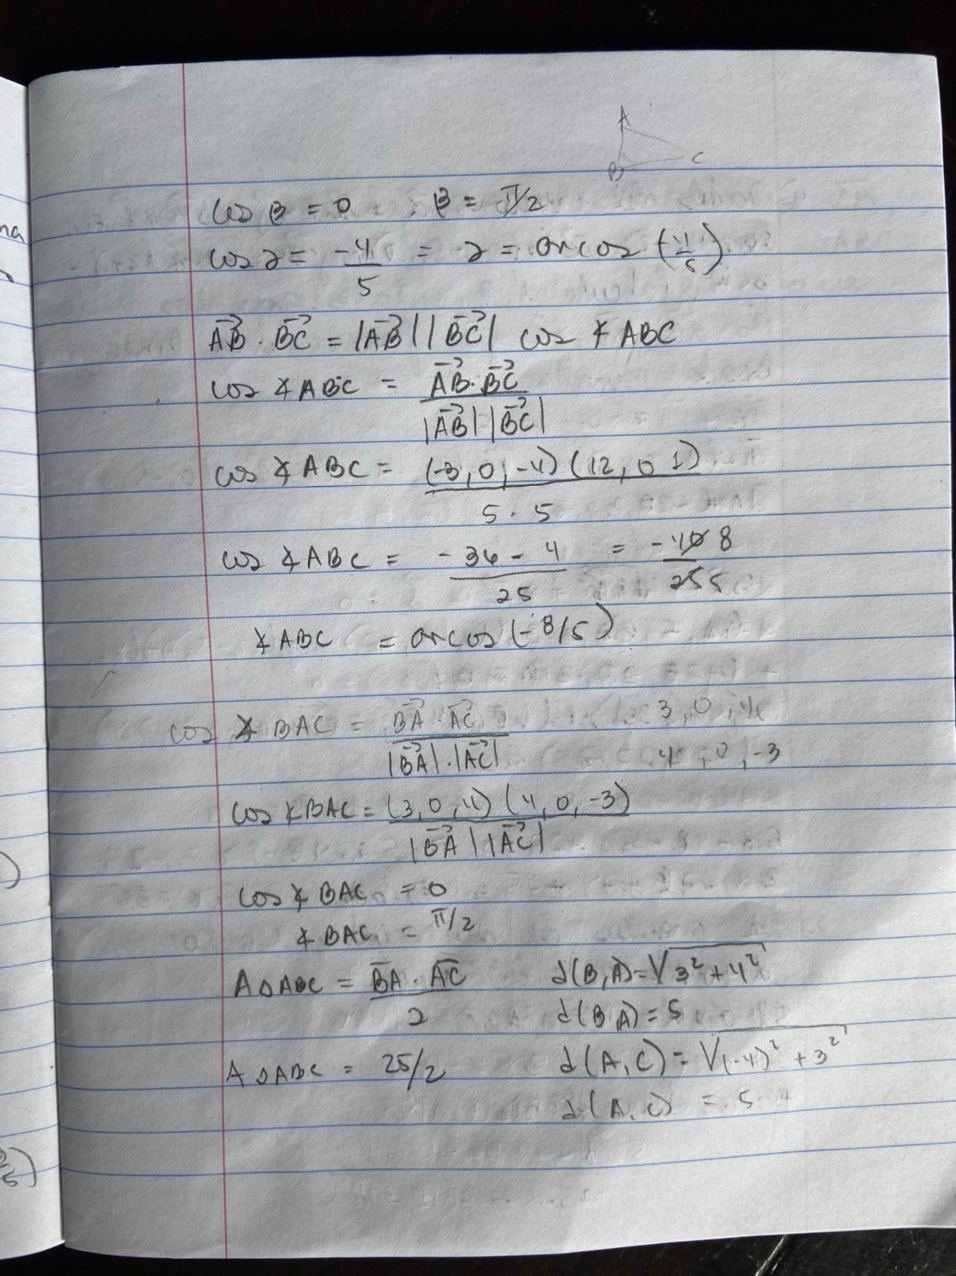 A
B C
cos β = 0 , β = π/2
cos γ = -4/5 = γ = arcos (-4/5)
AB⃗ · BC⃗ = |AB⃗| |BC⃗| cos ∡ABC
cos ∡ABC = AB⃗ · BC⃗ / |AB⃗| |BC⃗|
cos ∡ABC = (-3, 0, -4) (12, 0 1) / 5 · 5
cos ∡ABC = -36 - 4 / 25 = -40 8 / 25 5
∡ABC = arcos (-8/5)
cos ∡BAC = BA⃗ · AC⃗ / |BA⃗| · |AC⃗| 3, 0, 4
4, 0, -3
cos ∡BAC = (3, 0, 4) (4, 0, -3) / |BA⃗| |AC⃗|
cos ∡BAC = 0
∡BAC = π/2
A△ABC = BA · AC / 2 d(B, A) = √3² + 4²
d(B A) = 5
A△ABC = 25/2 d(A, C) = √(-4)² + 3²
d(A, C) = 5